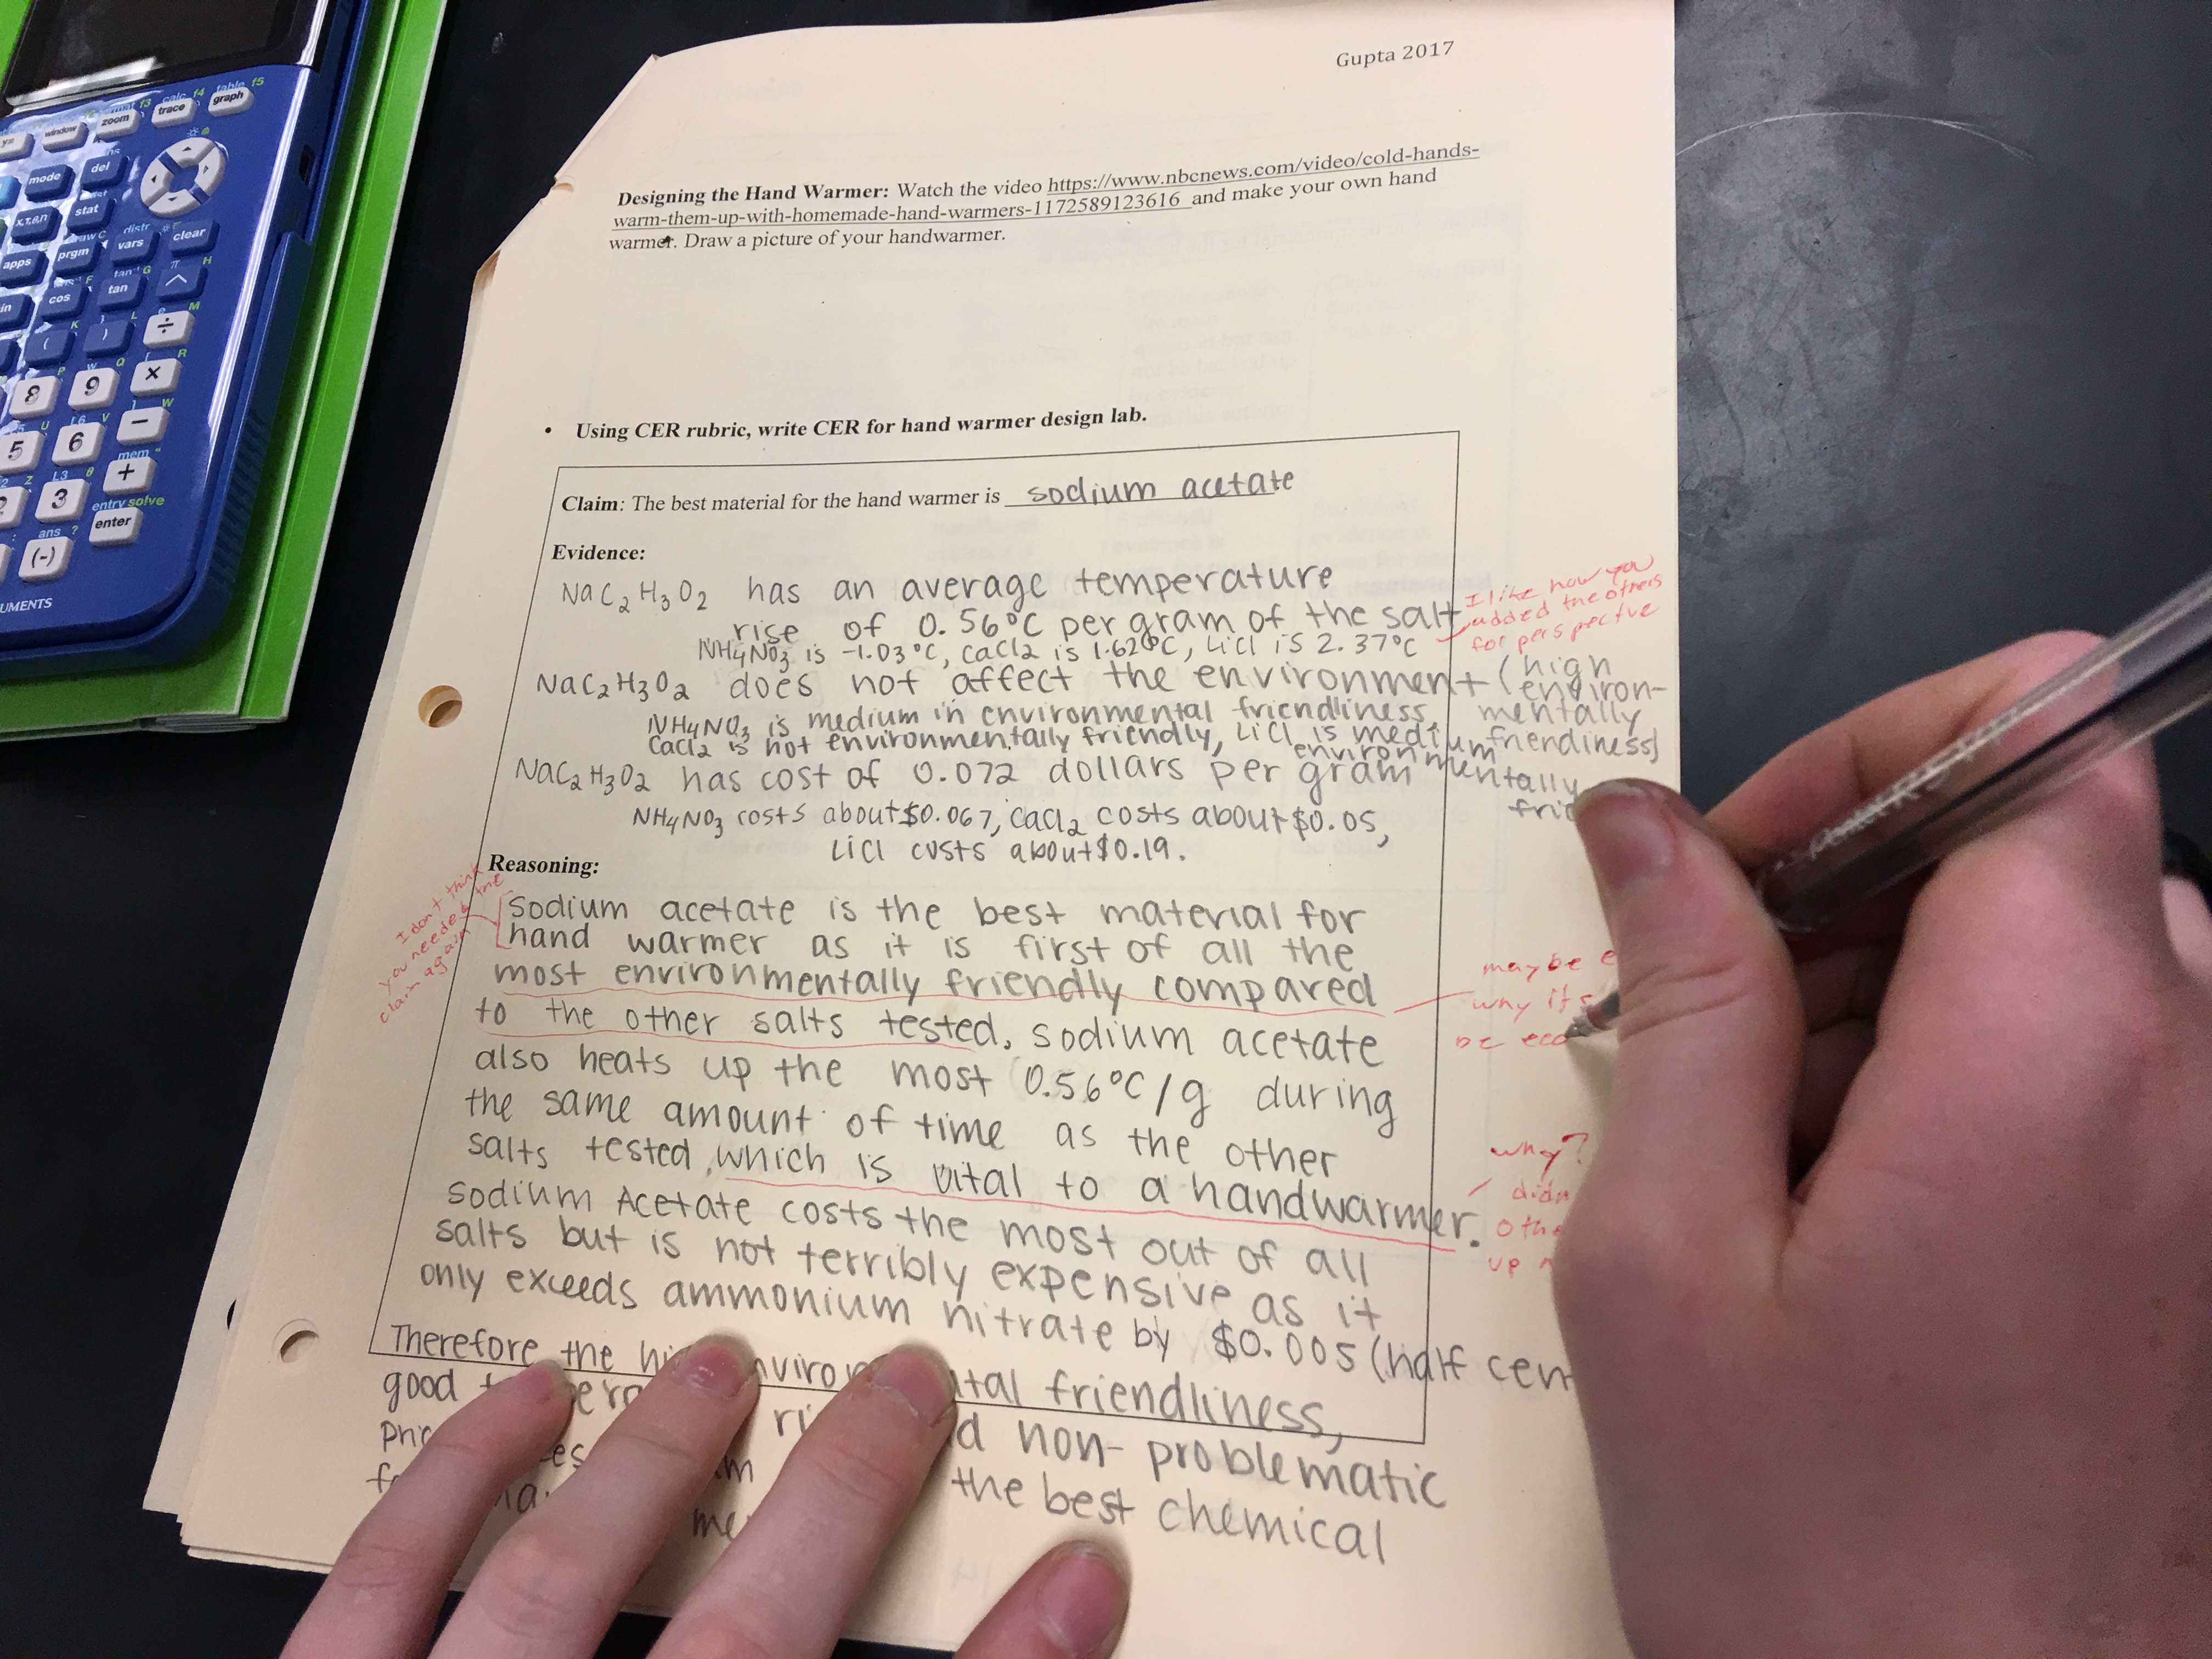 Gupta 2017
Designing the Hand Warmer: Watch the video https://www.nbcnews.com/video/cold-hands-
warm-them-up-with-homemade-hand-warmers-1172589123616 and make your own hand
warmer. Draw a picture of your handwarmer.
• Using CER rubric, write CER for hand warmer design lab.
Claim: The best material for the hand warmer is sodium acetate
Evidence:
NaC2H3O2 has an average temperature
rise of 0.56°C per gram of the salt
NH4NO3 is -1.03°C, CaCl2 is 1.62°C, LiCl is 2.37°C
I like how you
added the others
for perspectve
NaC2H3O2 does not affect the environment (high
environ-
mentally
friendliness)
NH4NO3 is medium in environmental friendliness,
CaCl2 is not environmentally friendly, LiCl is medium
environmentally
NaC2H3O2 has cost of 0.072 dollars per gram
NH4NO3 costs about $0.067, CaCl2 costs about $0.05,
LiCl costs about $0.19.
Reasoning:
I don't think
you needed the
claim again
Sodium acetate is the best material for
hand warmer as it is first of all the
most environmentally friendly compared
to the other salts tested, sodium acetate
also heats up the most 0.56°C/g during
the same amount of time as the other
salts tested, which is vital to a handwarmer.
Sodium Acetate costs the most out of all
salts but is not terribly expensive as it
only exceeds ammonium nitrate by $0.005 (half cen
Therefore the friendliness,
good
non-problematic
the best chemical
maybe
why its
be
why?
up
window
zoom
trace
graph
f3
calc f4
table f5
mode
del
x,T,θ,n
stat
apps
prgm
vars
clear
distr
cos
tan
tan⁻¹ G
π H
^
K
L
M
(
)
÷
8
9
×
P
Q
R
5
6
−
U
V
W
L6
3
+
L3 θ
mem "
entry solve
enter
ans ?
(-)